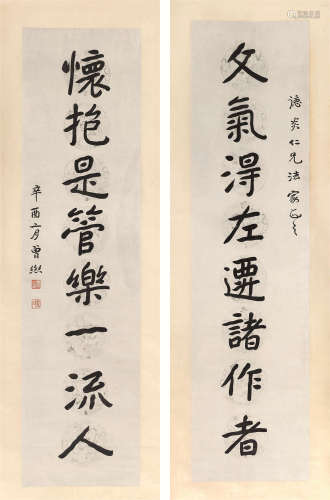 文氣得左遷諸作者
懷抱是管樂一流人
仁兄法家正之
辛酉六月曾熙